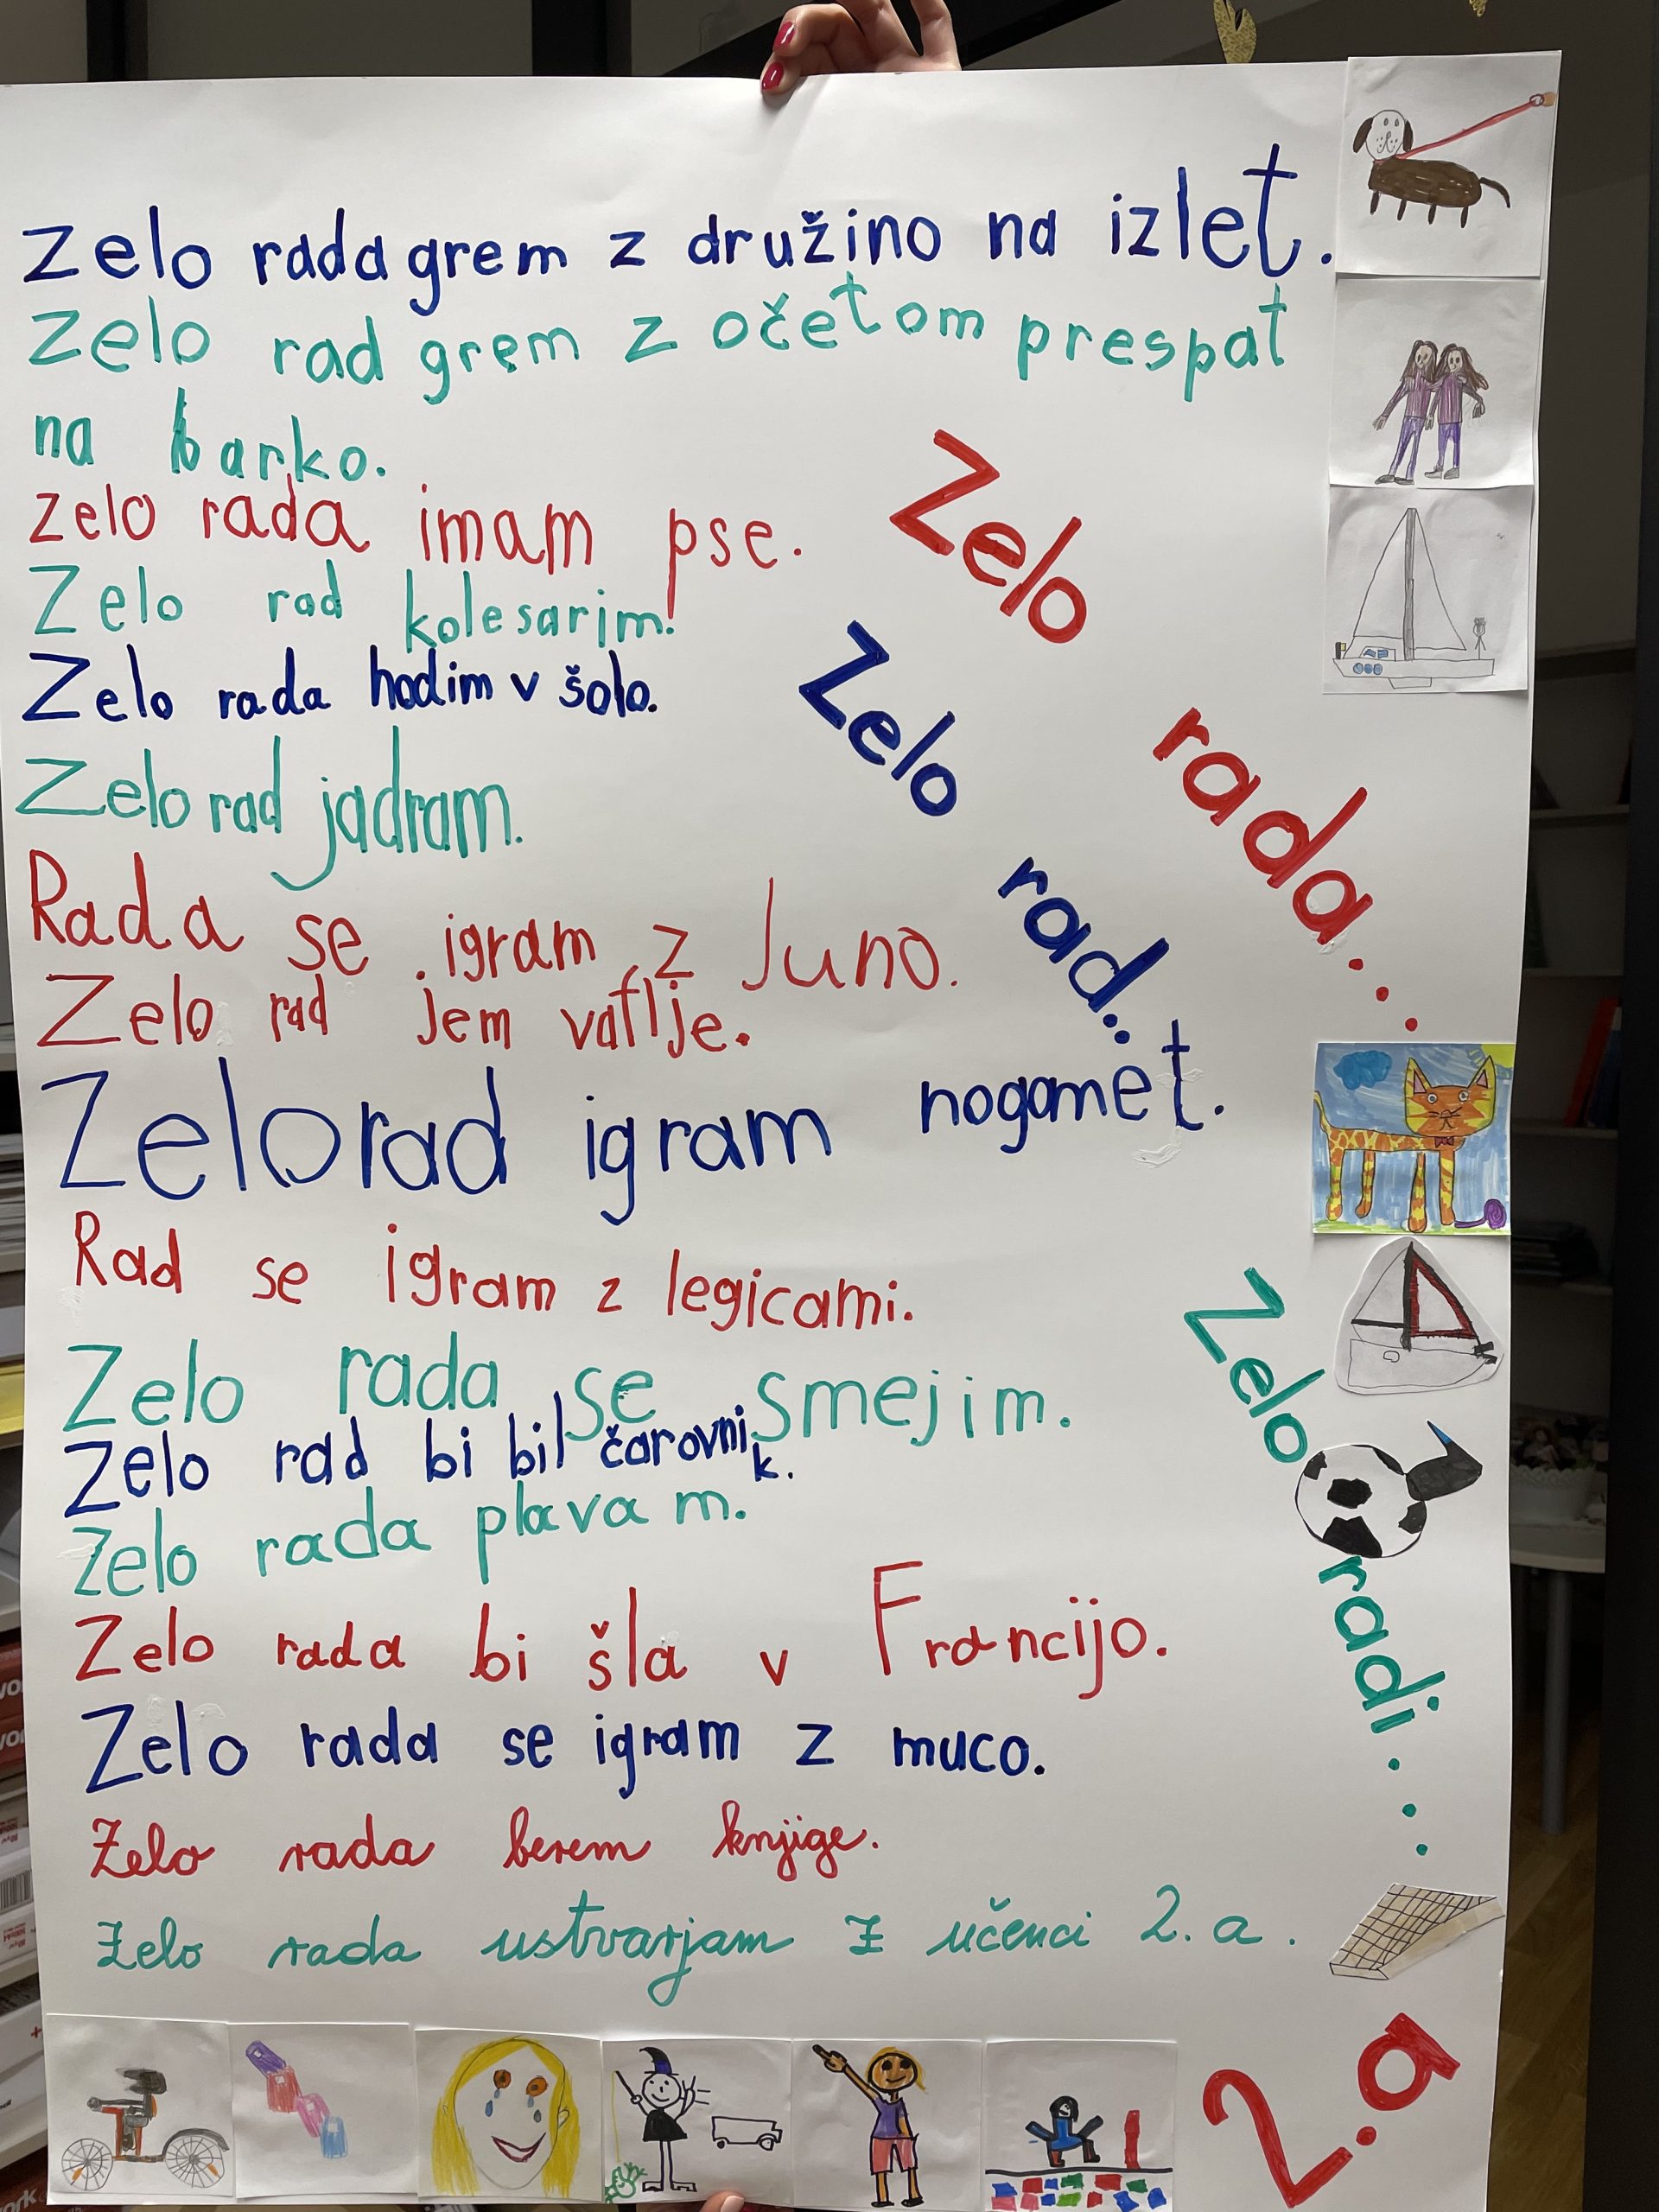 Zelo rada grem z družino na izlet.
Zelo rad grem z očetom prespat
na barko.
Zelo rada imam pse.
Zelo rad kolesarim!
Zelo rada hodim v šolo.
Zelo rad jadram.
Rada se igram z Juno.
Zelo rad jem vaflje.
Zelo rad igram nogomet.
Rad se igram z legicami.
Zelo rada se smejim.
Zelo rad bi bil čarovnik.
Zelo rada plavam.
Zelo rada bi šla v Francijo.
Zelo rada se igram z muco.
Zelo rada berem knjige.
Zelo rada ustvarjam z učenci 2. a.
Zelo rada...
Zelo rad...
Zelo radi...
2.a